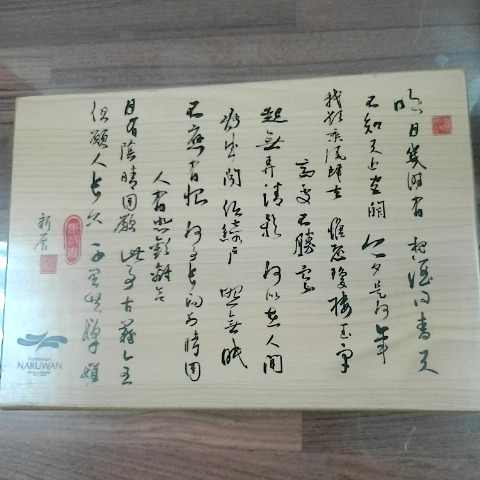 明月幾時有 把酒問青天
不知天上宮闕 今夕是何年
我欲乘風歸去 惟恐瓊樓玉宇
高處不勝寒
起舞弄清影 何似在人間
轉朱閣 低綺戶 照無眠
不應有恨 何事長向別時圓
人有悲歡離合
月有陰晴圓缺 此事古難全
但願人長久 千里共嬋娟
新居
NARUWAN